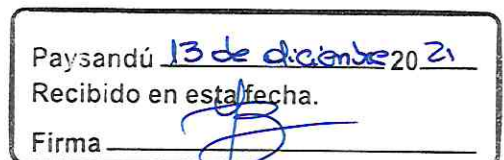 Paysandú 13 de diciembre 20 21
Recibido en esta fecha.
Firma